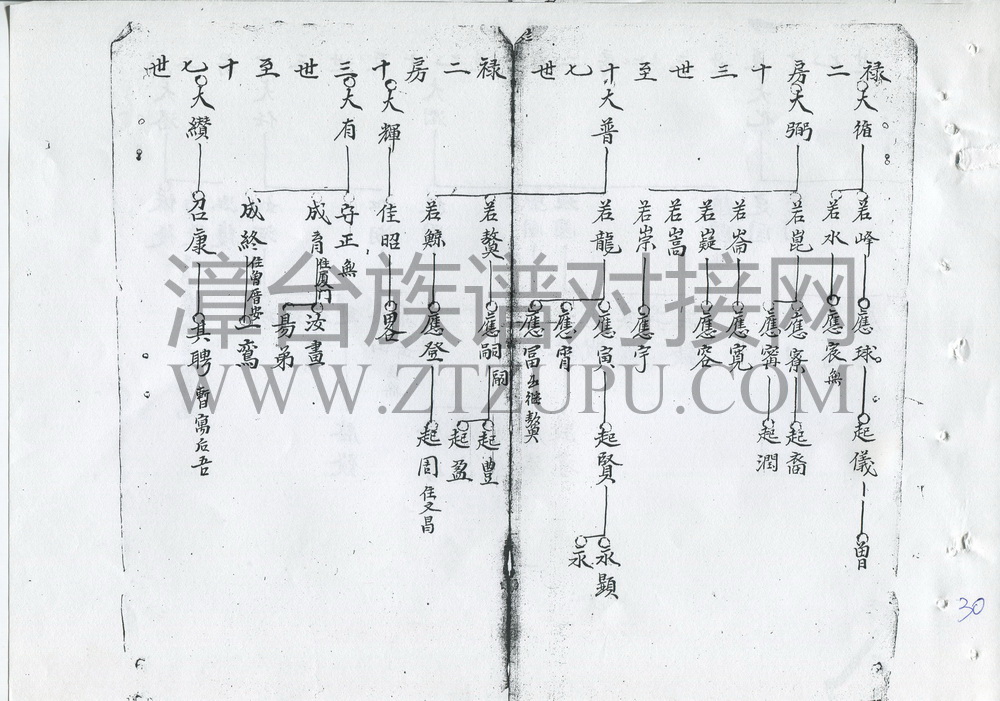 禄二房十三世至十七世
大循
大弼
大普
若峰
若水
若崑
若崙
若嶷
若嵩
若崇
若龍
應球
應宸無
應寮
應寗
應寬
應容
應宇
應寅
應宵
應冨出継獒
起儀
起裔
起潤
起賢
曾
永顯
永
禄二房十三世至十七世
大輝
大有
大纘
若獒
若鯨
佳昭
守正無
成育住厦门
成終住曽厝安
召康
應嗣嗣
應登
畧
汝畫
易弟
一鸞
其聘暫寓后吾
起豊
起盈
起周住文昌
漳台族谱对接网
WWW.ZTZUPU.COM
30